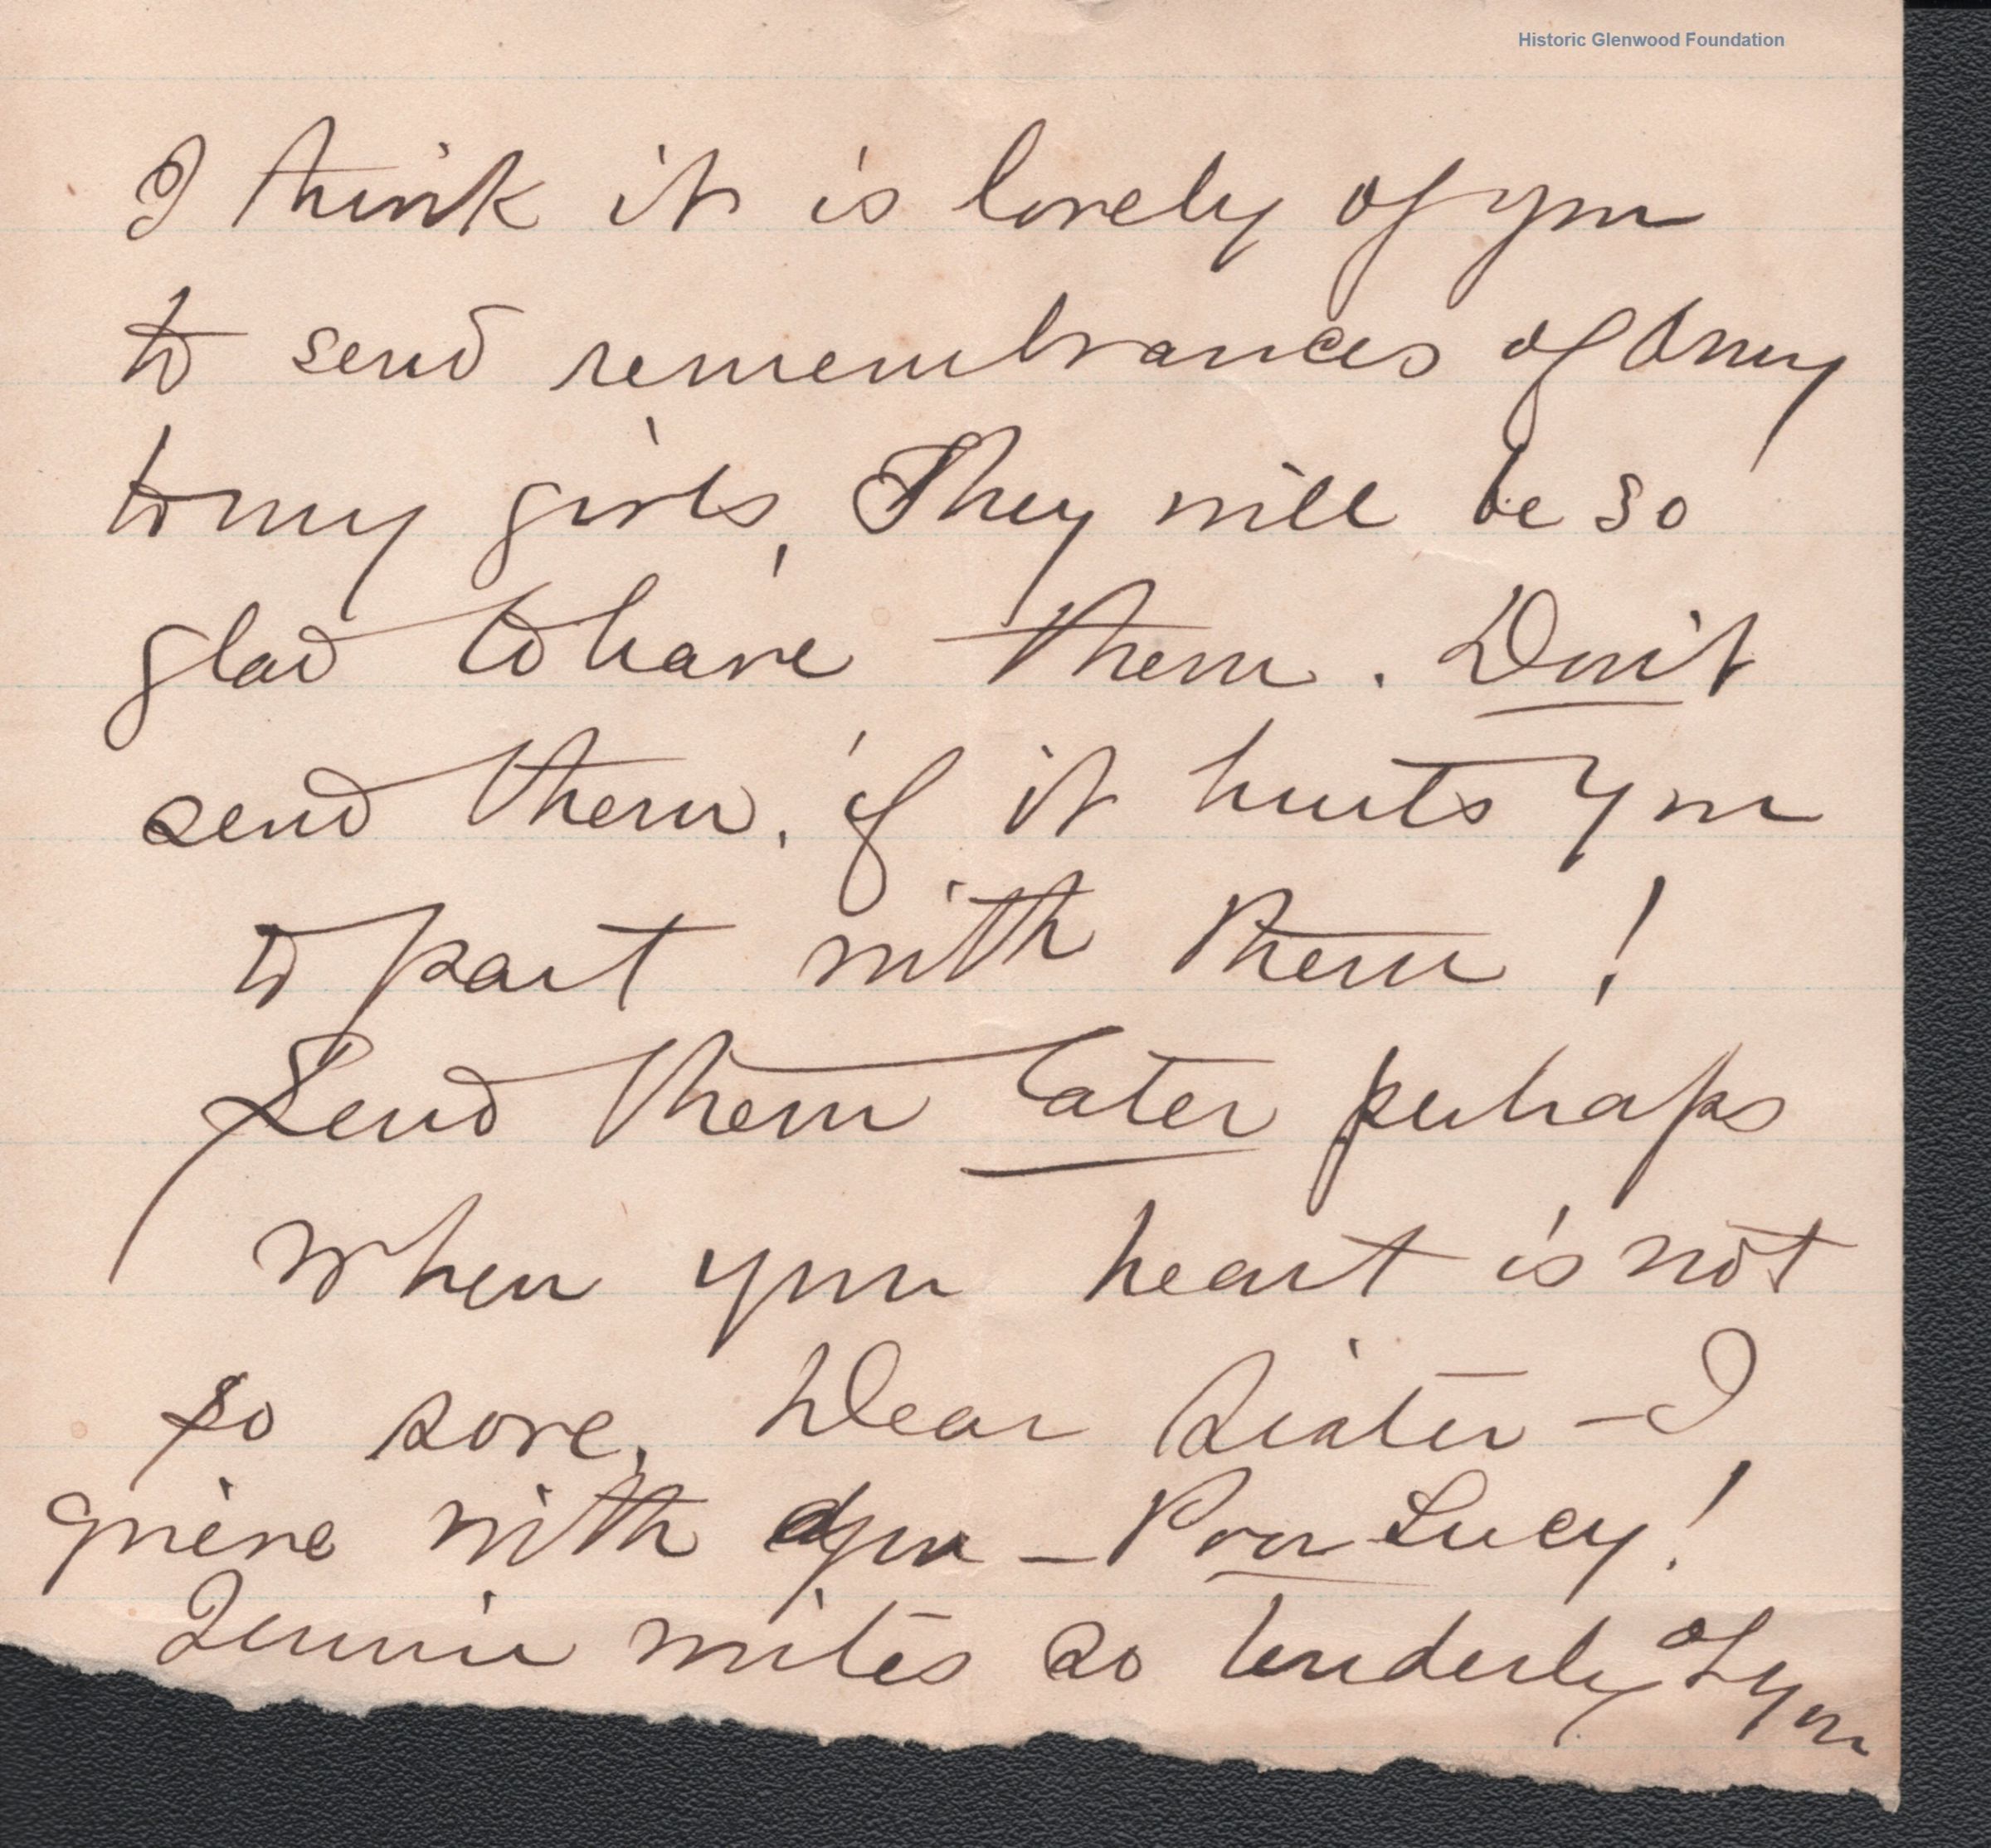 Historic Glenwood Foundation
I think it is lovely of you
to send remembrances of
to my girls, They will be so
glad to have them. Don't
send them, if it hurts you
to part with them!
Send them later perhaps
when your heart is not
so sore. Dear Sister – I
grieve with you – Poor Lucy!
Jennie writes so tenderly of you